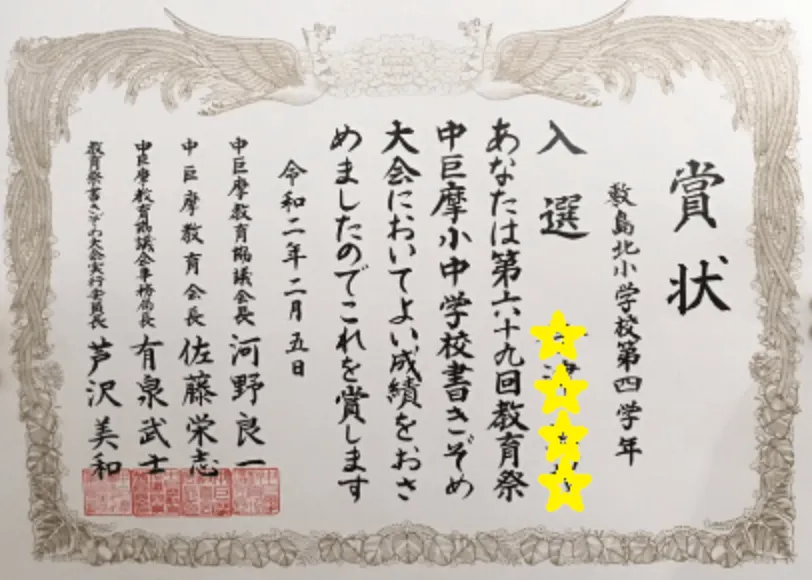 賞状
敷島北小学校第四学年
入選
あなたは第六十九回教育祭
中巨摩小中学校書きぞめ
大会においてよい成績をおさ
めましたのでこれを賞します
令和二年二月五日
中巨摩教育協議会長 河野良一
中巨摩教育会長 佐藤栄志
中巨摩教育協議会事務局長 有泉武士
教育祭書きぞめ大会実行委員長 芦沢美和